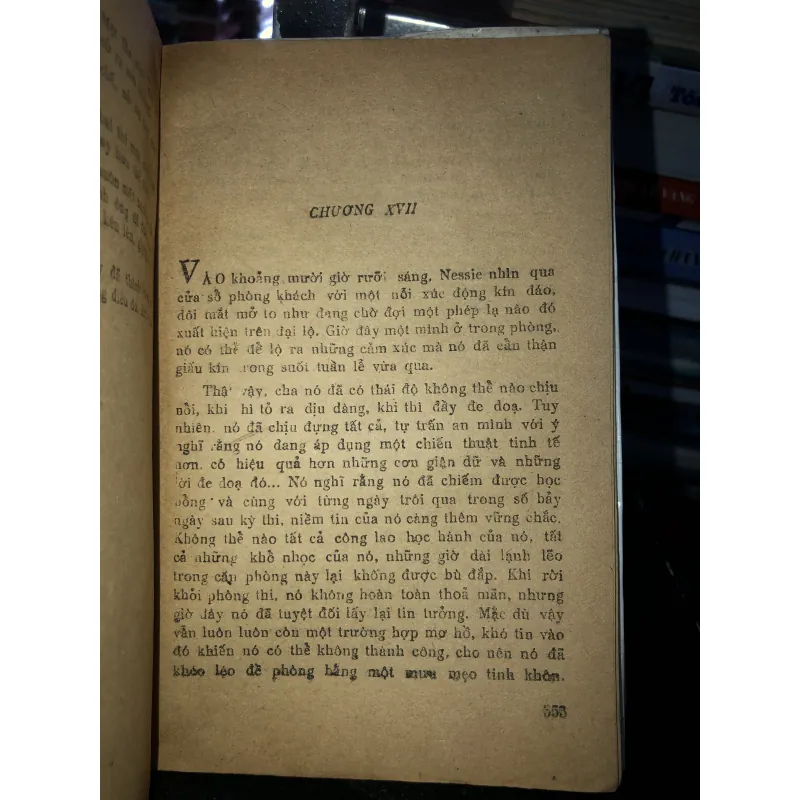 CHƯƠNG XVII
VÀO khoảng mười giờ rưỡi sáng, Nessie nhìn qua
cửa sổ phòng khách với một nỗi xúc động kín đáo,
đôi mắt mở to như đang chờ đợi một phép lạ nào đó
xuất hiện trên đại lộ. Giờ đây một mình ở trong phòng,
nó có thể để lộ ra những cảm xúc mà nó đã cẩn thận
giấu kín trong suốt tuần lễ vừa qua.
Thật vậy, cha nó đã có thái độ không thể nào chịu
nổi, khi thì tỏ ra dịu dàng, khi thì đầy đe doạ. Tuy
nhiên, nó đã chịu đựng tất cả, tự trấn an mình với ý
nghĩ rằng nó đang áp dụng một chiến thuật tinh tế
hơn, có hiệu quả hơn những cơn giận dữ và những
lời đe doạ đó... Nó nghĩ rằng nó đã chiếm được học
bổng và cùng với từng ngày trôi qua trong số bảy
ngày sau kỳ thi, niềm tin của nó càng thêm vững chắc.
Không thể nào tất cả công lao học hành của nó, tất
cả những khổ nhọc của nó, những giờ dài lạnh lẽo
trong căn phòng này lại không được bù đắp. Khi rời
khỏi phòng thi, nó không hoàn toàn thoả mãn, nhưng
giờ đây nó đã tuyệt đối lấy lại tin tưởng. Mặc dù vậy
vẫn luôn luôn còn một trường hợp mơ hồ, khó tin vào
đó khiến nó có thể không thành công, cho nên nó đã
khéo léo đề phòng bằng một mưu mẹo tinh khôn.
553
Tó